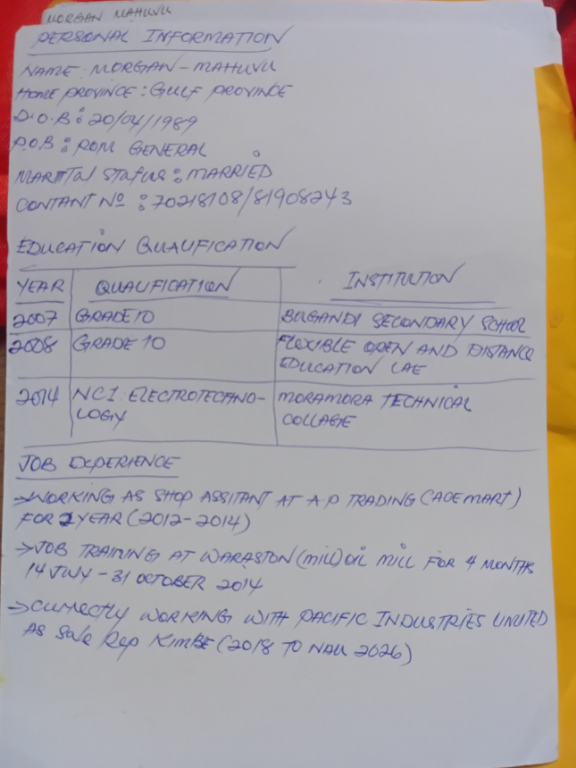 MORGAN MAHUVU
PERSONAL INFORMATION
NAME: MORGAN-MAHUVU
HOME PROVINCE: GULF PROVINCE
D.O.B: 20/04/1989
P.O.B: POM GENERAL
MARITTAL STATUS: MARRIED
CONTANT Nº: 70218108/81908243
EDUCATION QUALIFICATION
YEAR QUALIFICATION INSTITUTION
2007 GRADE 10 BUGANDI SECONDARY SCHOOL
2008 GRADE 10 FLEXIBLE OPEN AND DISTANCE
EDUCATION LAE
2014 NC1 ELECTROTECHNO- MORAMORA TECHNICAL
LOGIY COLLAGE
JOB EXPERIENCE
→WORKING AS SHOP ASSITANT AT A.P TRADING (ACEMART)
FOR 2 YEAR (2012-2014)
→JOB TRAINING AT WARASTON (mill) OIL MILL FOR 4 MONTHS
14 JULY - 31 OCTOBER 2014
→CURRECTLY WORKING WITH PACIFIC INDUSTRIES LIMITED
AS Sale Rep KIMBE (2018 TO NAU 2026)